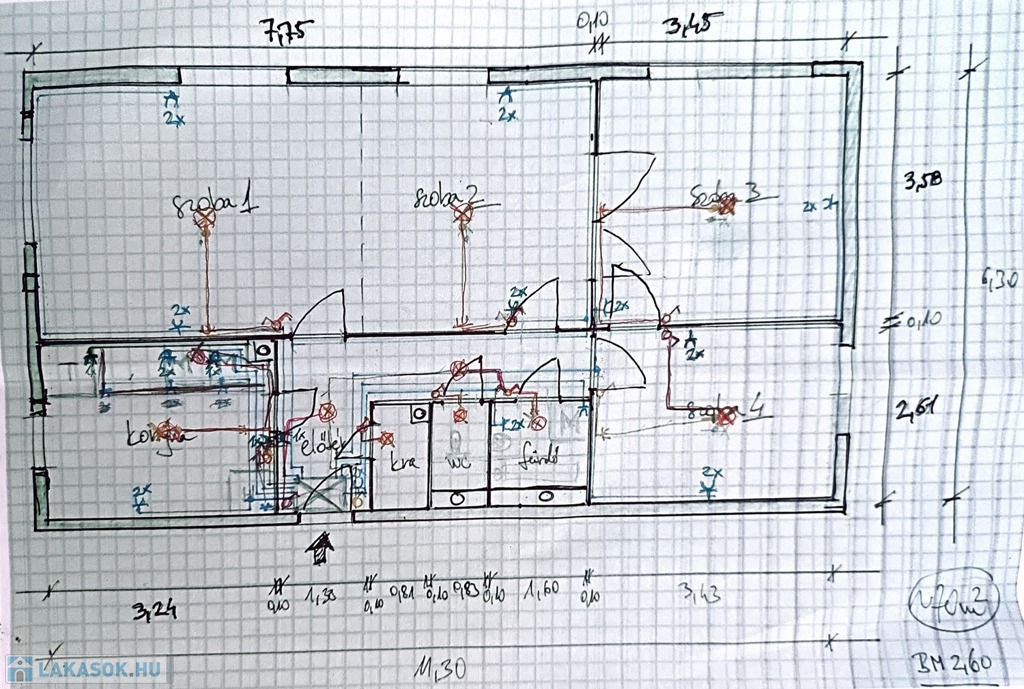 7,75
0,10
3,45
A
2x
A
2x
3,58
szoba 1
szoba 2
szoba 3
2x
6,30
2x
2x
2x
0,10
A
2x
konyha
1x
előtér
kra
wc
2x
fürdő
M
szoba 4
2,61
2x
2x
3,24
0,10
1,30
0,10
0,81
0,10
0,83
0,10
1,60
0,10
3,43
11,30
BM 2,60
LAKASOK.HU